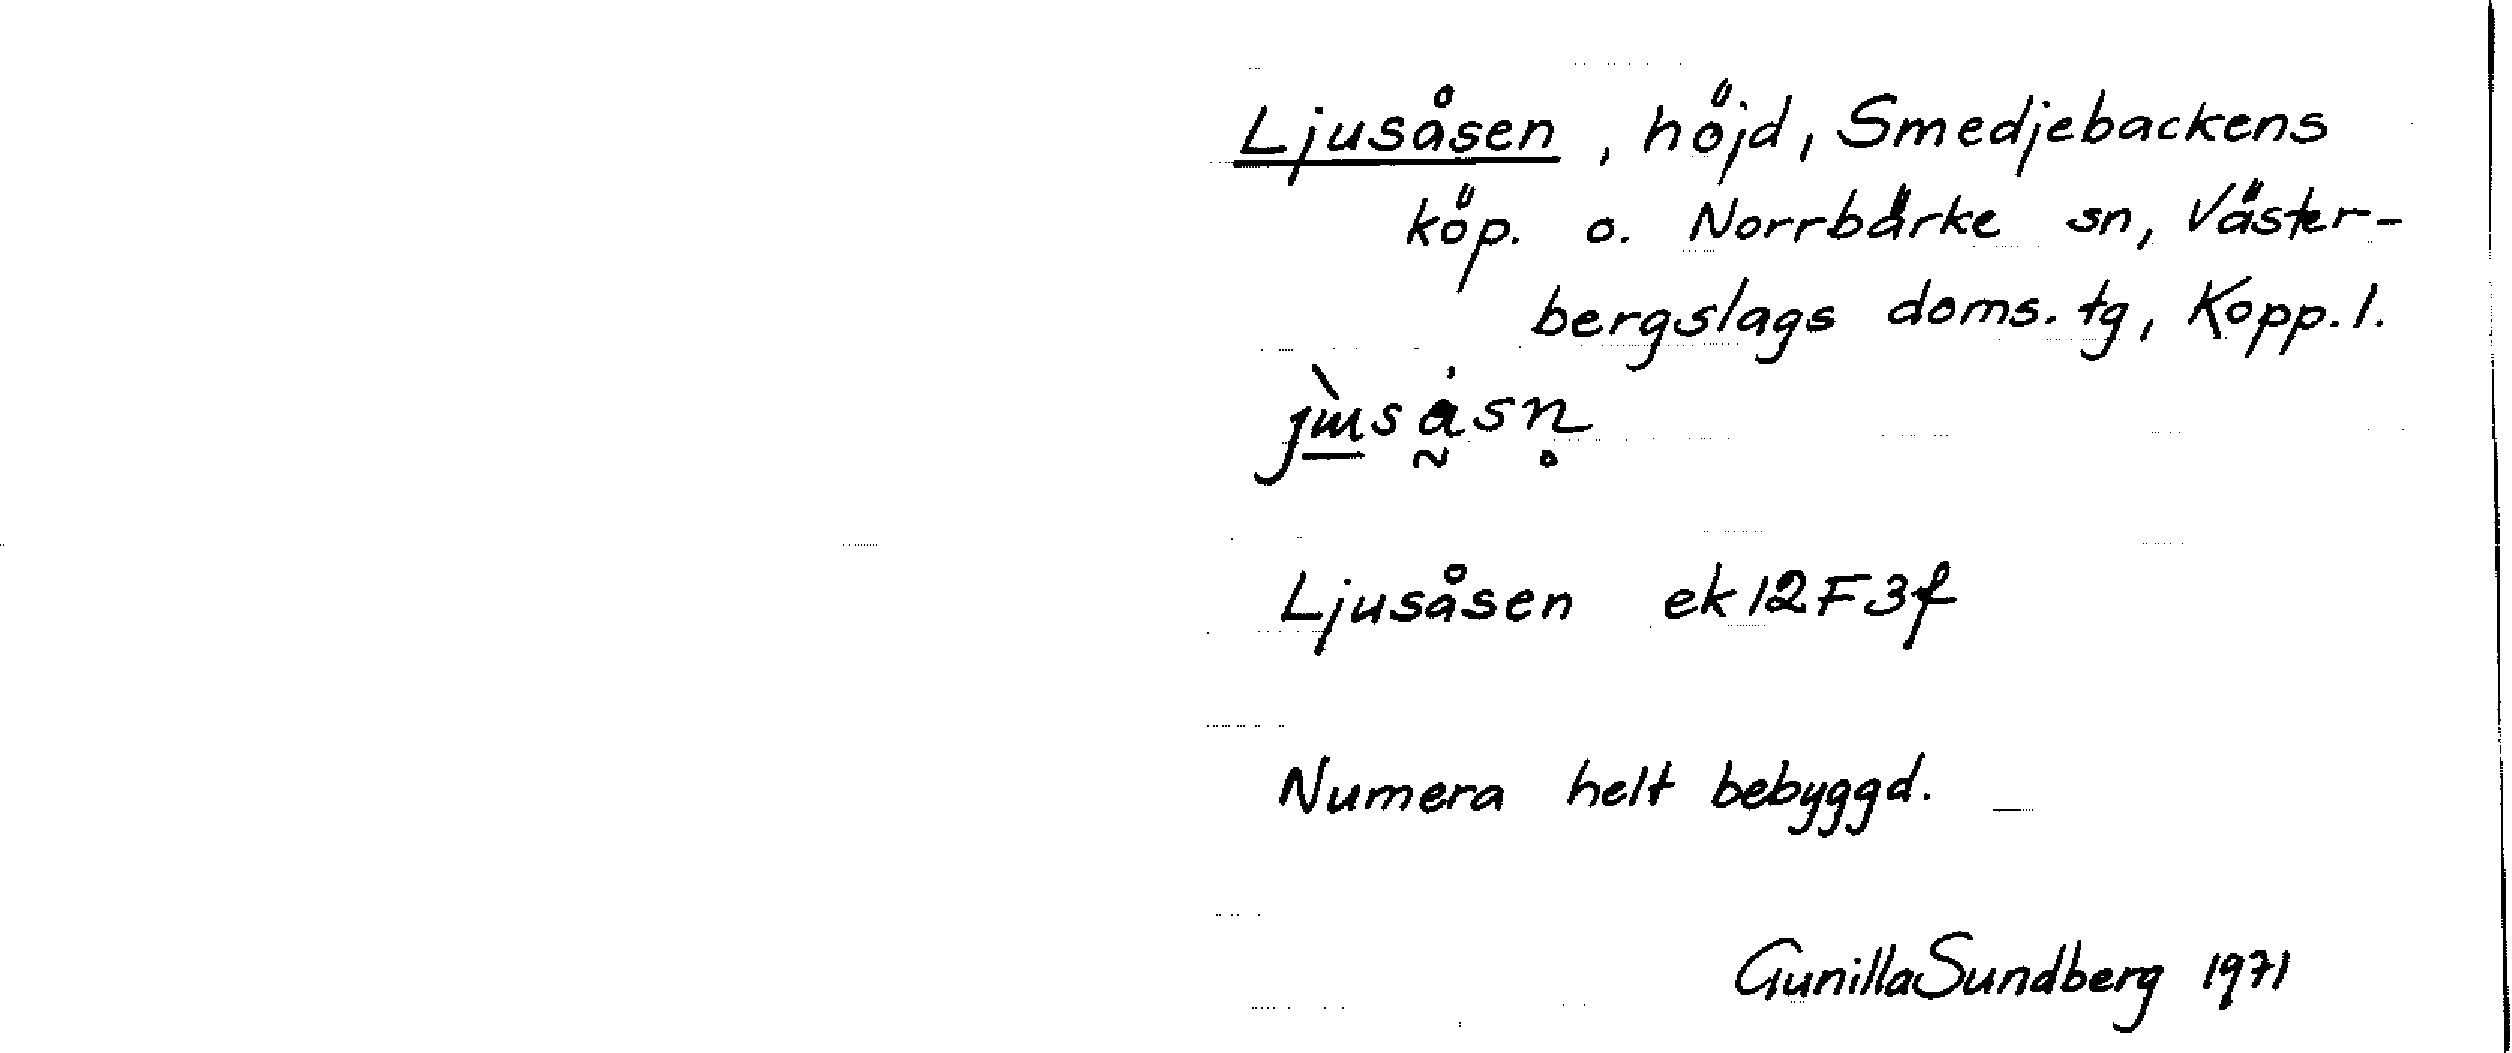 Ljusåsen, höjd, Smedjebackens
köp. o. Norrbärke sn, Väster-
bergslags doms. tg, Kopp. l.
Ljusåsen ek 12F3f
Numera helt bebyggd.
Gunilla Sundberg 1971